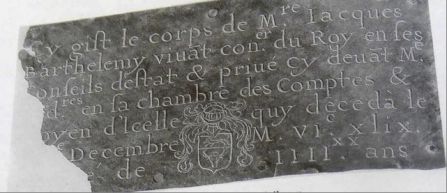 Cy gist le corps de Mre Iacques
Barthelemy viuāt coner du Roy en ses
Conseils destat & priué cy deuāt Me
dres en sa chambre des Comptes &
oyen d'Icelle quy deceda le
e Decembre M. VIc XLIX.
e de IIIIxx ans